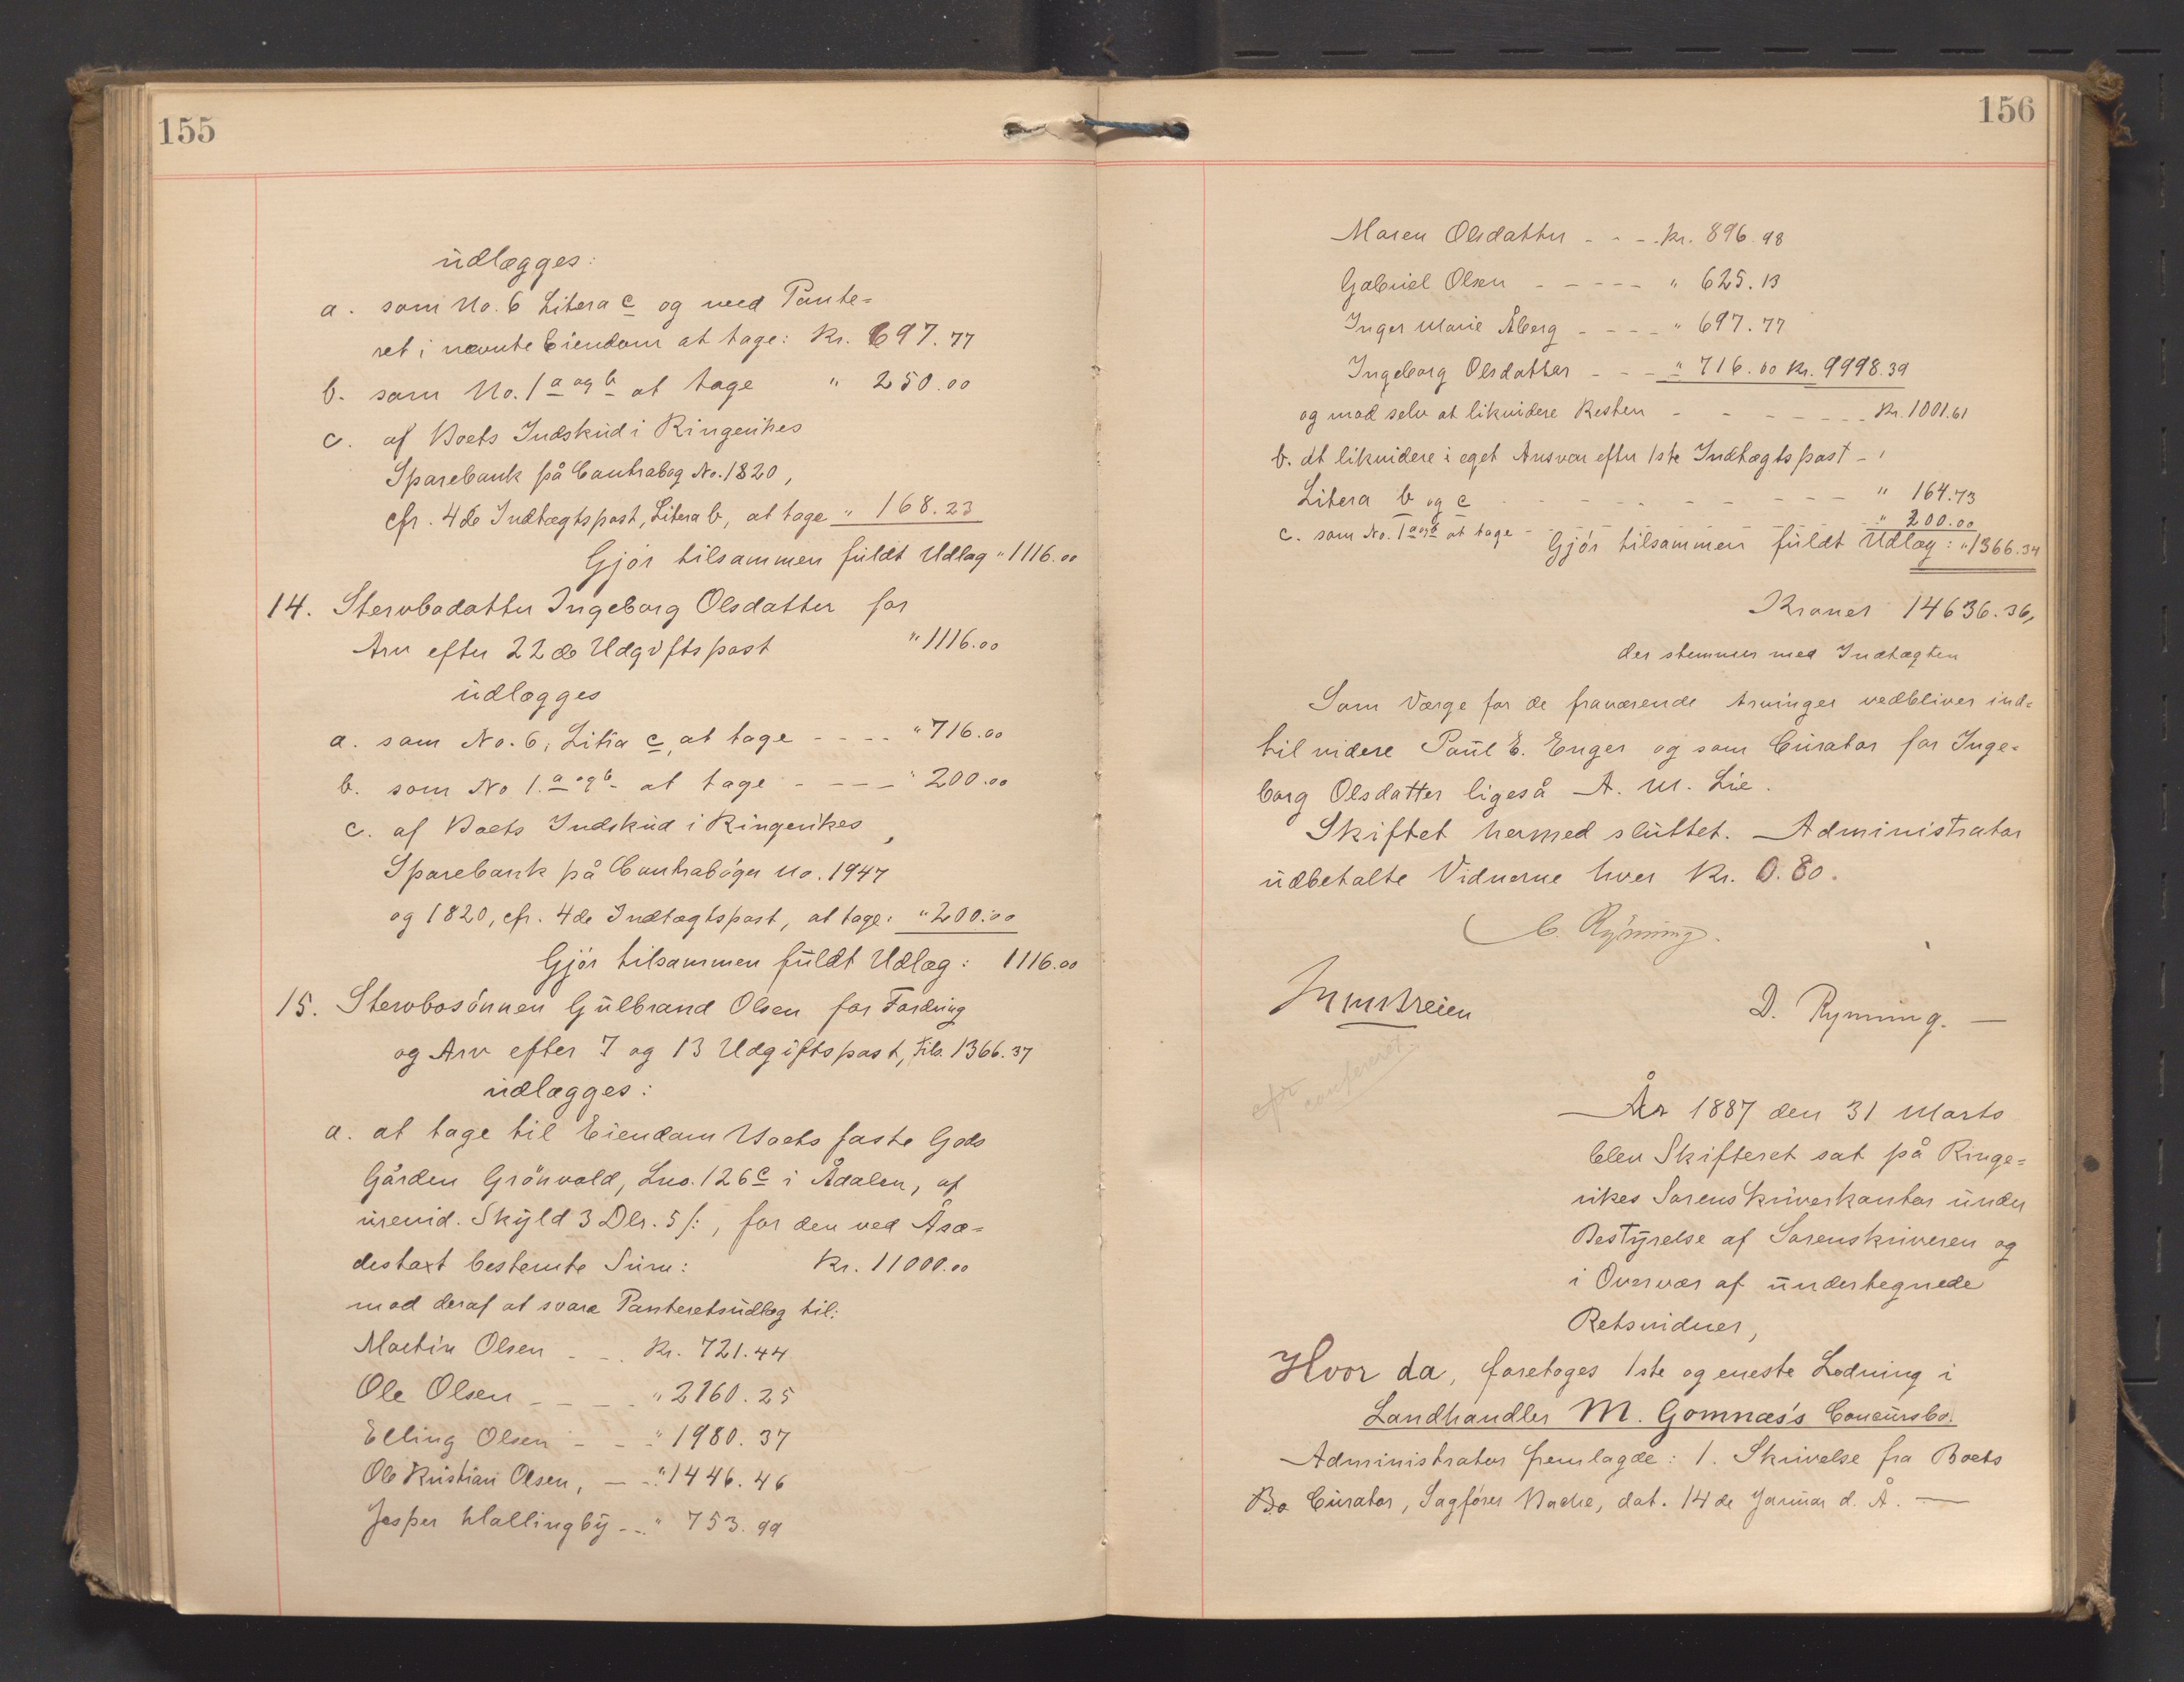 155
udlægges:
a. som No. 6 Litera c og med Pante=
ret i nævnte Eiendom at tage: Kr. 697.77
b. som No. 1 a og b at tage " 250.00
c. af Boets Indskud i Ringerikes
Sparebank på Contrabog No. 1820,
cfr. 4de Indtægtspost, Litera b, at tage " 168.23
Gjør tilsammen fuldt Udlæg " 1116.00
14. Stervbodatter Ingeborg Olsdatter for
Arv efter 22de Udgiftspost " 1116.00
udlægges
a. som No. 6, Litra c, at tage - - - - " 716.00
b. som No 1. a og b at tage - - - - " 200.00
c. af Boets Indskud i Ringerikes
Sparebank på Contrabøger No. 1947
og 1820, cfr. 4de Indtægtspost, at tage: " 200.00
Gjør tilsammen fuldt Udlæg: 1116.00
15. Stervbosønnen Gulbrand Olsen for Fordring
og Arv efter 7 og 13 Udgiftspost, tils. 1366.37
udlægges:
a. at tage til Eiendom Boets faste Gods
Gården Grönvold, Lno. 126 c i Ådalen, af
urevid. Skyld 3 Dlr. 5 /:, for den ved Åsæ=
destaxt bestemte Sum: Kr. 11000.00
mod deraf at svare Panteretsudlæg til:
Martin Olsen - - . Kr. 721.44
Ole Olsen - - - - " 2160.25
Elling Olsen - - - " 1980.37
Ole Kristian Olsen, - - " 1446.46
Jesper Hallingby - - " 753.99
156
Maren Olsdatter - - - Kr. 896.98
Gabriel Olsen - - - - - " 625.13
Inger Marie Åberg - - - - " 697.77
Ingeborg Olsdatter - - - " 716.00 Kr. 9998.39
og mod selv at likvidere Resten - - - - - - Kr. 1001.61
b. at likvidere i eget Ansvar efter 1ste Indtægtspost -
Litera b og c - - - - - - - - - " 164.73
c. som No. 1 a og b at tage - - - - - - - " 200.00
Gjør tilsammen fuldt Udlæg: " 1366.34
Kroner 14636.36,
der stemmer med Indtægten
Som Værge for de fraværende Arvinger vedbliver ind=
til videre Paul E. Enger og som Curator for Inge=
borg Olsdatter ligeså A. M. Lie.
Skiftet hermed sluttet. Administrator
udbetalte Vidnerne hver Kr. 0.80.
C. Rynning.
D. Rynning. —
cfr
confereret.
År 1887 den 31 Marts
blev Skifteret sat på Ringe=
rikes Sorenskriverkontor under
Bestyrelse af Sorenskriveren og
i Overvær af undertegnede
Retsvidner,
Hvor da, foretoges 1ste og eneste Lodning i
Landhandler M. Gomnæs's Concursbo.
Administrator fremlagde: 1. Skrivelse fra Boets
Bo Curator, Sagfører Bache, dat. 14de Januar d. Å. —